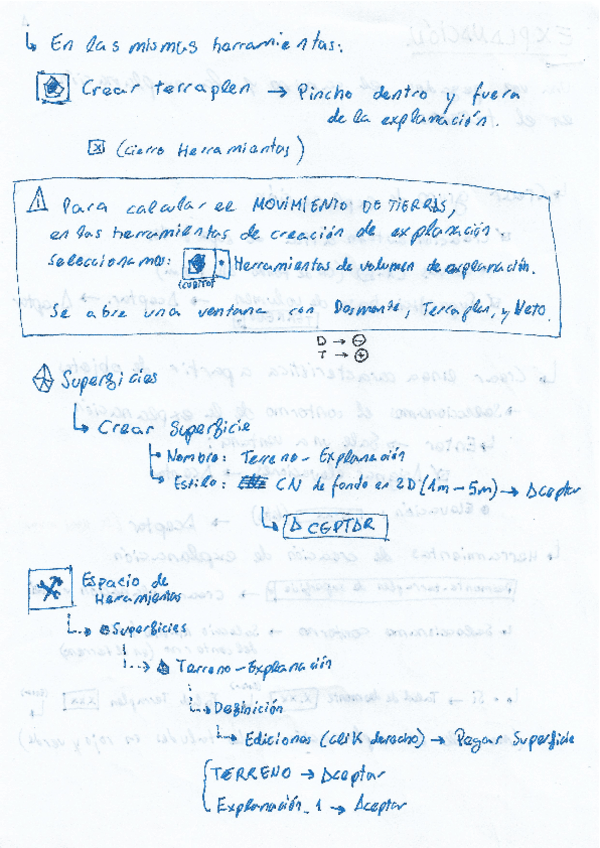 ↳ En las mismas herramientas:
Crear terraplen → Pincho dentro y fuera
de la explanación.
☒ (cierro Herramientas)
⚠ Para calcular el MOVIMIENTO DE TIERRAS,
en las herramientas de creación de explanación
seleccionamos: Herramientas de volumen de explanación.
(CUBITO)
Se abre una ventana con Desmonte, Terraplen, y Neto.
D → ⊖
T → ⊕
Superficies
↳ Crear Superficie
↳ Nombre: Terreno - Explanación
↳ Estilo: CN de fondo en 2D (1m - 5m) → Aceptar
↳ ACEPTAR
Espacio de
Herramientas
↳ Superficies
↳ Terreno - Explanación
↳ Definición
↳ Ediciones (clik derecho) → Pegar Superficie
TERRENO → Aceptar
Explanación_1 → Aceptar